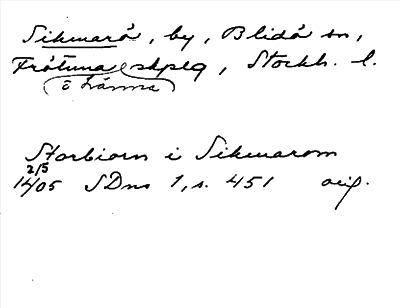 Sikmarö, by, Blidö sn,
Frötuna skplg, Stockh. l.
o Länna
Storbiorn i Sikmarom
2/5
1405 SDns 1, s. 451 orig.